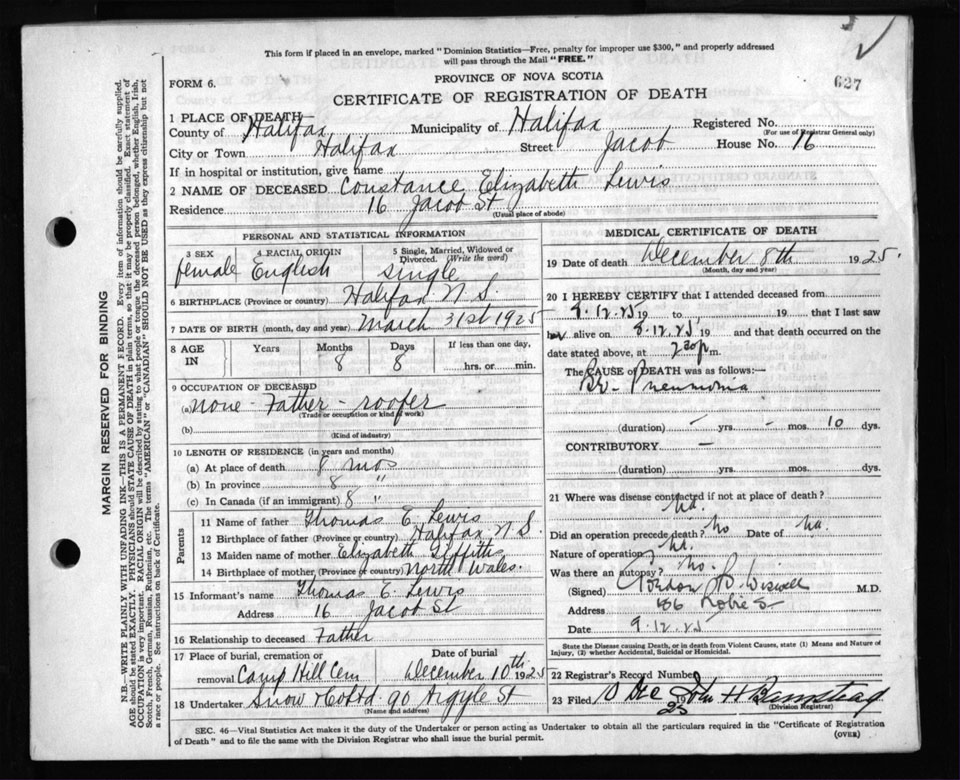 This form if placed in an envelope, marked "Dominion Statistics—Free, penalty for improper use $300," and properly addressed
will pass through the Mail "FREE."
FORM 6.
PROVINCE OF NOVA SCOTIA
627
CERTIFICATE OF REGISTRATION OF DEATH
1 PLACE OF DEATH
County of Halifax Municipality of Halifax Registered No.
(For use of Registrar General only)
City or Town Halifax Street Jacob House No. 16
If in hospital or institution, give name
2 NAME OF DECEASED Constance Elizabeth Lewis
Residence 16 Jacob St
(Usual place of abode)
PERSONAL AND STATISTICAL INFORMATION
3 SEX 4 RACIAL ORIGIN 5 Single, Married, Widowed or Divorced. (Write the word)
female English single
6 BIRTHPLACE (Province or country) Halifax N S.
7 DATE OF BIRTH (month, day and year) March 31st 1925
8 AGE IN Years Months Days If less than one day,
8 8 hrs. or min.
9 OCCUPATION OF DECEASED
(a) none - Father - roofer
(Trade or occupation or kind of work)
(b)
(Kind of industry)
10 LENGTH OF RESIDENCE (in years and months)
(a) At place of death 8 mos
(b) In province 8 "
(c) In Canada (if an immigrant) 8 "
Parents
11 Name of father Thomas E. Lewis
12 Birthplace of father (Province or country) Halifax N S.
13 Maiden name of mother Elizabeth
14 Birthplace of mother (Province or country) North Wales.
15 Informant's name Thomas E. Lewis
Address 16 Jacob St
16 Relationship to deceased Father
17 Place of burial, cremation or removal Camp Hill Cem
Date of burial December 10th 1925
18 Undertaker Snow & Co Ltd 90 Argyle St
(Name and address)
MEDICAL CERTIFICATE OF DEATH
19 Date of death December 8th 1925.
(Month, day and year)
20 I HEREBY CERTIFY that I attended deceased from
8.12.25 19 to 19 that I last saw
her alive on 8.12.25 19 and that death occurred on the
date stated above, at 7 30 p m.
The CAUSE of DEATH was as follows:—
Br- Pneumonia
(duration) - yrs. - mos. 10 dys.
CONTRIBUTORY -
(duration) yrs. mos. dys.
21 Where was disease contracted if not at place of death?
na.
Did an operation precede death? no Date of na.
Nature of operation na.
Was there an autopsy? no.
(Signed) Wiswell M.D.
Address 186 Robie S
Date 9.12.25
State the Disease causing Death, or in death from Violent Causes, state (1) Means and Nature of
Injury, (2) whether Accidental, Suicidal or Homicidal.
22 Registrar's Record Number
23 Filed 10 Dec 19 John H Barnstead
(Division Registrar)
SEC. 46—Vital Statistics Act makes it the duty of the Undertaker or person acting as Undertaker to obtain all the particulars required in the "Certificate of Registration
of Death" and to file the same with the Division Registrar who shall issue the burial permit. (OVER)
MARGIN RESERVED FOR BINDING
N.B.—WRITE PLAINLY WITH UNFADING INK—THIS IS A PERMANENT RECORD. Every item of information should be carefully supplied.
AGE should be stated EXACTLY. PHYSICIANS should STATE CAUSE OF DEATH in plain terms, so that it may be properly classified. Exact statement of
OCCUPATION is very important. RACIAL ORIGIN will be described by stating to what people or tongue the deceased person belonged, whether English, Irish,
Scotch, French, German, Russian, Ruthenian, etc. The terms "AMERICAN" or "CANADIAN" SHOULD NOT BE USED as they express citizenship but not
a race or people. See instructions on back of Certificate.